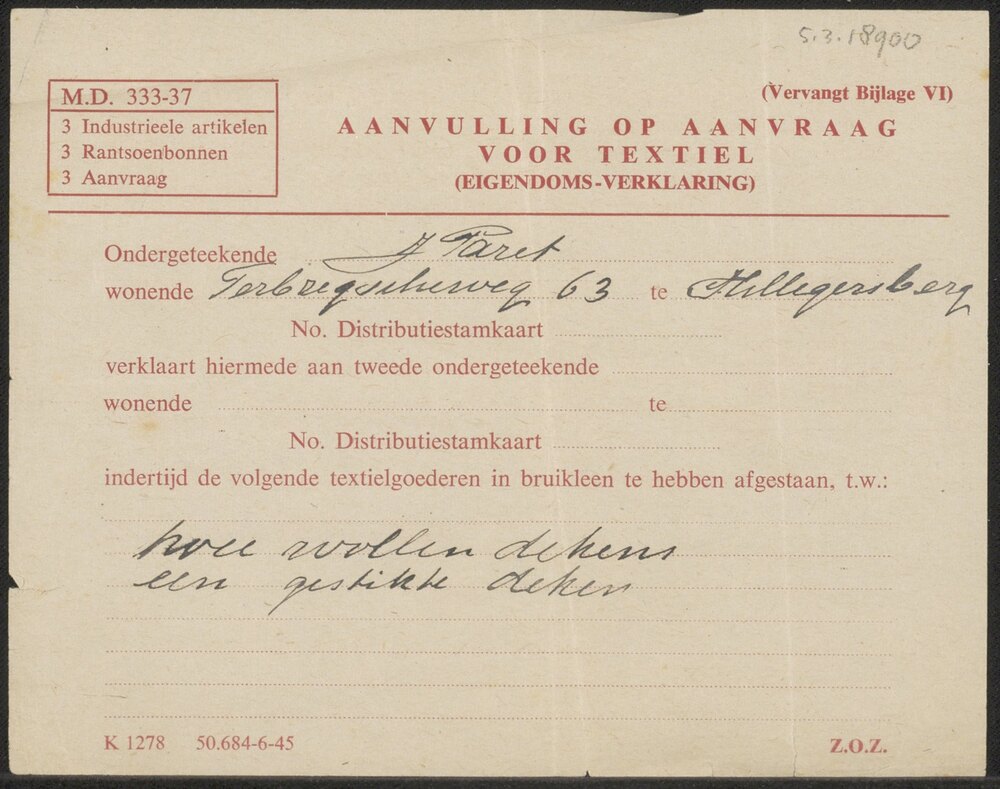 5.3.18900
M.D. 333-37
3 Industrieele artikelen
3 Rantsoenbonnen
3 Aanvraag
(Vervangt Bijlage VI)
AANVULLING OP AANVRAAG
VOOR TEXTIEL
(EIGENDOMS-VERKLARING)
Ondergeteekende J Paret
wonende Terbregscheweg 63 te Hillegersberg
No. Distributiestamkaart
verklaart hiermede aan tweede ondergeteekende
wonende te
No. Distributiestamkaart
indertijd de volgende textielgoederen in bruikleen te hebben afgestaan, t.w.:
twee wollen dekens
een gestikte deken
K 1278 50.684-6-45
Z.O.Z.